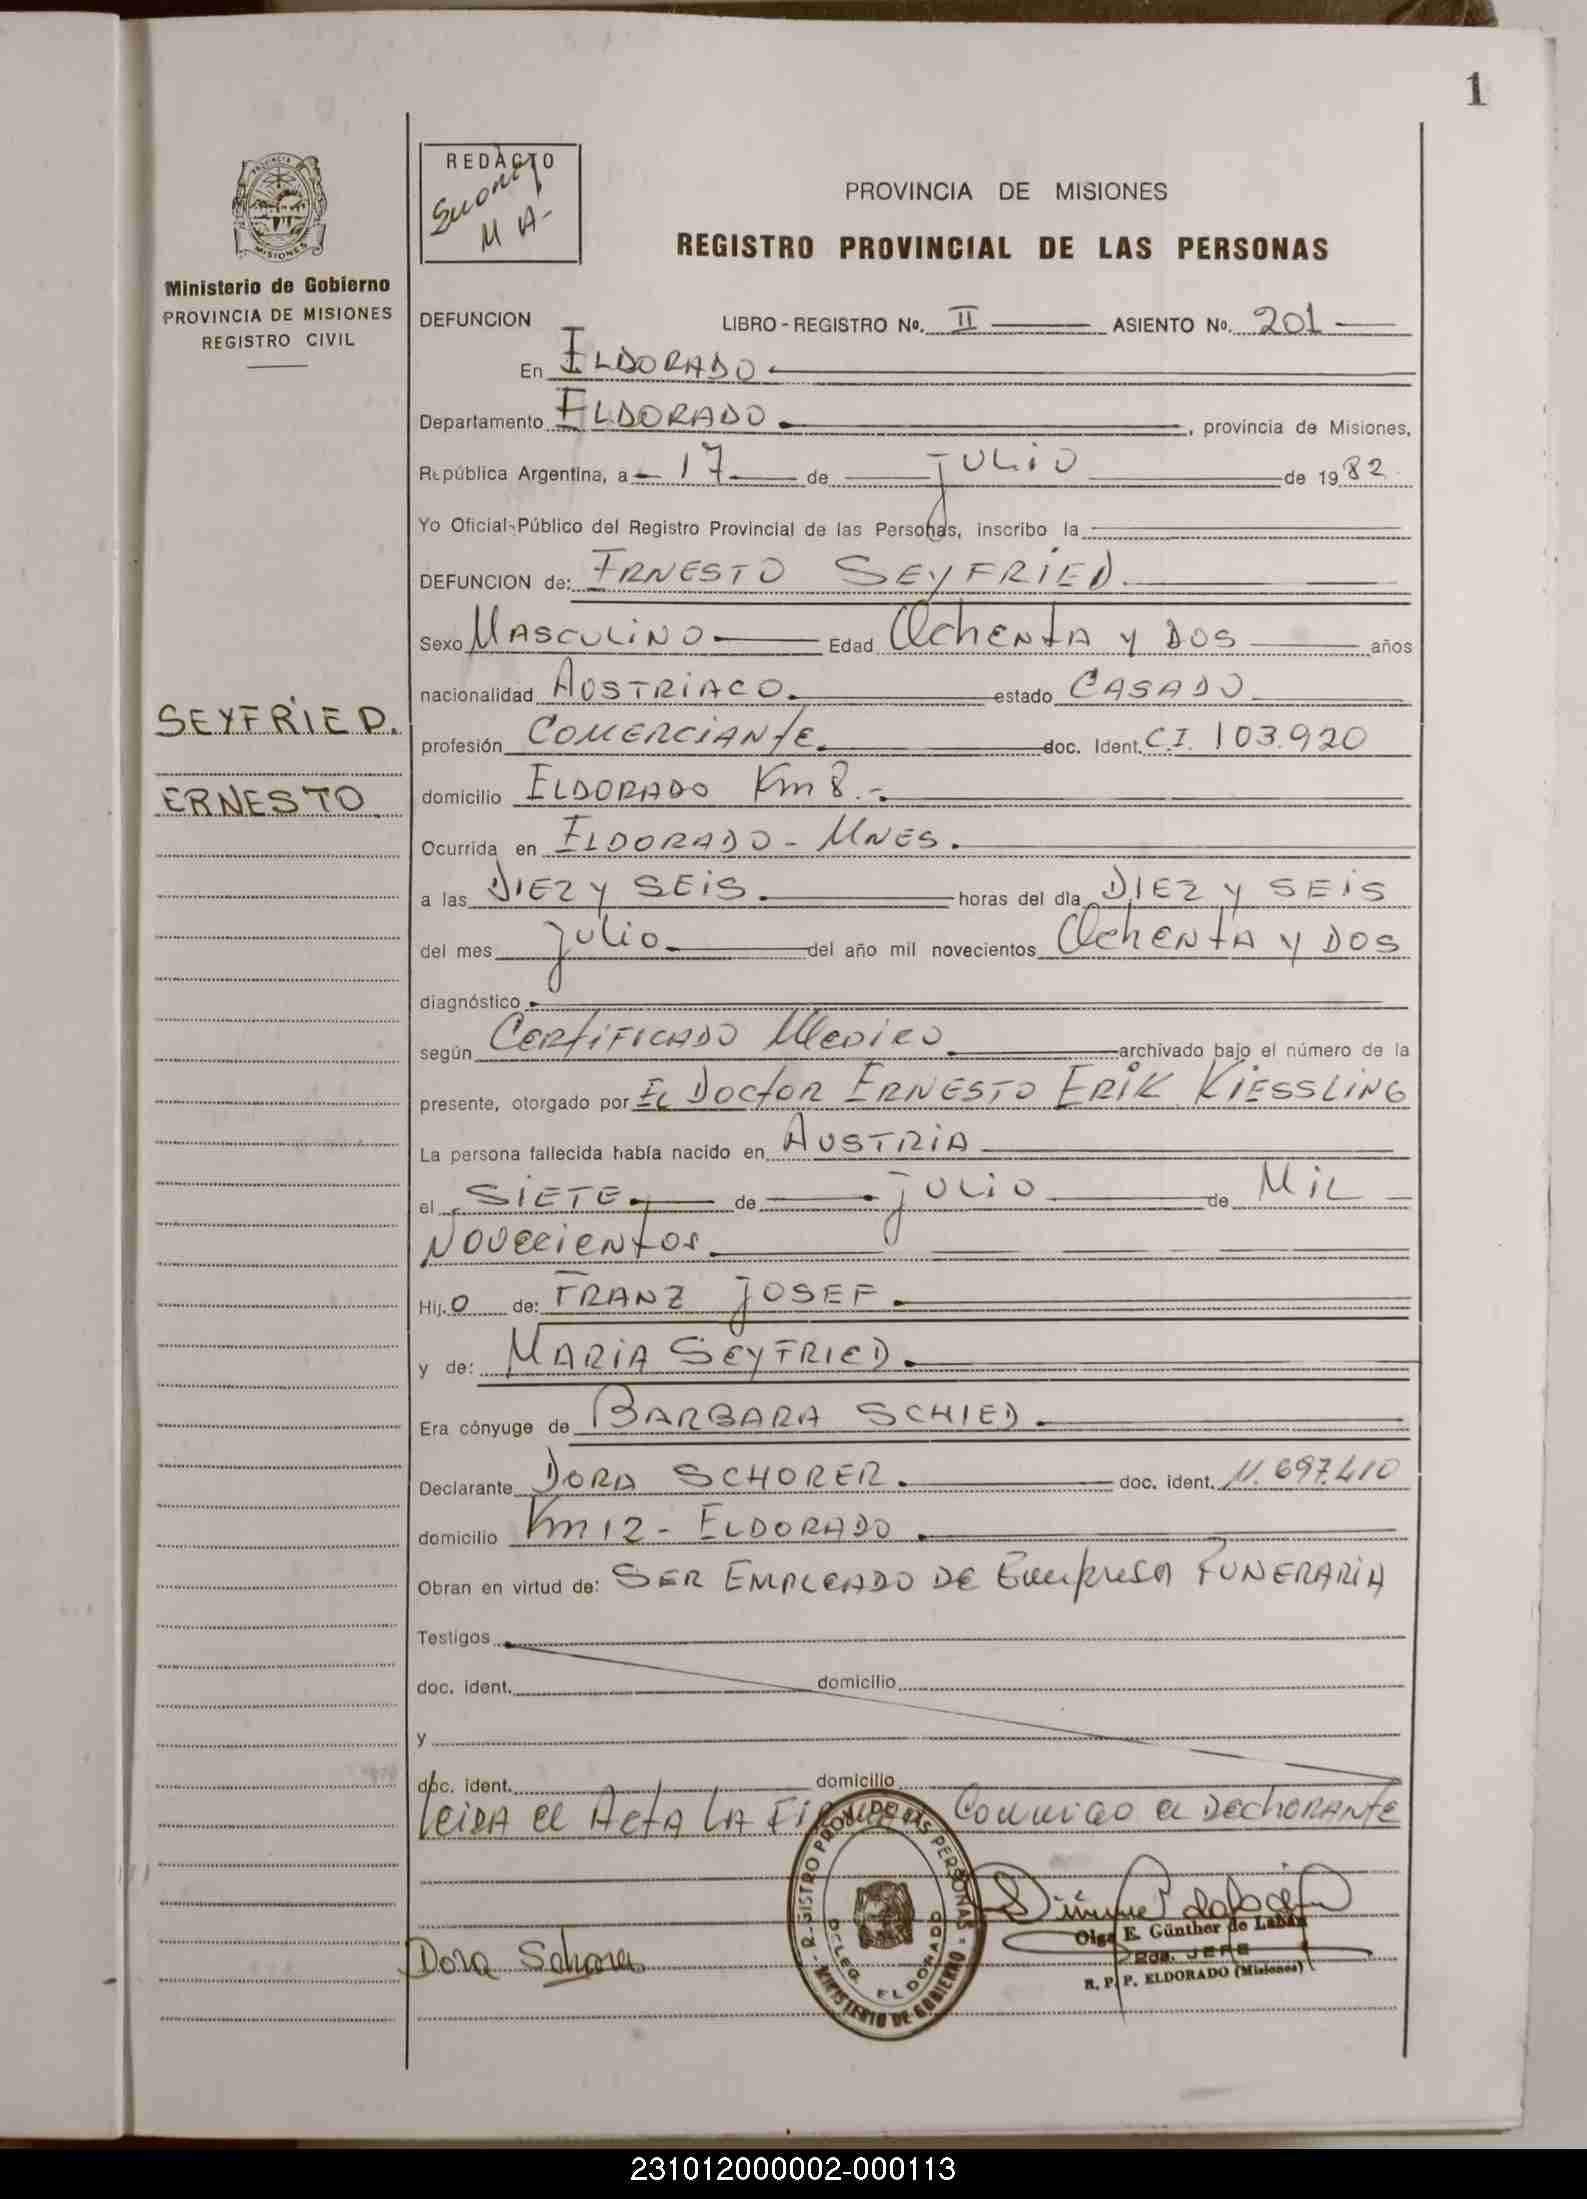 1
PROVINCIA MISIONES
Ministerio de Gobierno
PROVINCIA DE MISIONES
REGISTRO CIVIL
REDACTO
M A-
PROVINCIA DE MISIONES
REGISTRO PROVINCIAL DE LAS PERSONAS
DEFUNCION LIBRO - REGISTRO Nº. II ASIENTO Nº. 201
En ELDORADO
Departamento ELDORADO, provincia de Misiones,
República Argentina, a 17 de JULIO de 1982
Yo Oficial Público del Registro Provincial de las Personas, inscribo la
DEFUNCION de: ERNESTO SEYFRIED
Sexo MASCULINO Edad OCHENTA Y DOS años
SEYFRIED.
ERNESTO
nacionalidad AUSTRIACO. estado CASADO
profesión COMERCIANTE doc. Ident. C.I. 103.920
domicilio ELDORADO Km 8.-
Ocurrida en ELDORADO - MNES.
a las DIEZ Y SEIS horas del día DIEZ Y SEIS
del mes JULIO del año mil novecientos OCHENTA Y DOS
diagnóstico
según CERTIFICADO MEDICO archivado bajo el número de la
presente, otorgado por EL DOCTOR ERNESTO ERIK KIESSLING
La persona fallecida había nacido en AUSTRIA
el SIETE de JULIO de MIL
NOVECIENTOS
Hij.O de: FRANZ JOSEF
y de: MARIA SEYFRIED.
Era cónyuge de BARBARA SCHIED
Declarante DORA SCHORER. doc. ident. 11.697.410
domicilio Km 12 - ELDORADO
Obran en virtud de: SER EMPLEADO DE EMPRESA FUNERARIA
Testigos
doc. ident. domicilio
y
doc. ident. domicilio
LEIDA EL ACTA LA CONMIGO EL DECHORANTE
REGISTRO PROV. DE LAS PERSONAS - MINISTERIO DE GOBIERNO -
DELEG. ELDORADO
Olga E. Günther de Labán
2da. JEFE
R. P. P. ELDORADO (Misiones)
Dora Schorer
231012000002-000113